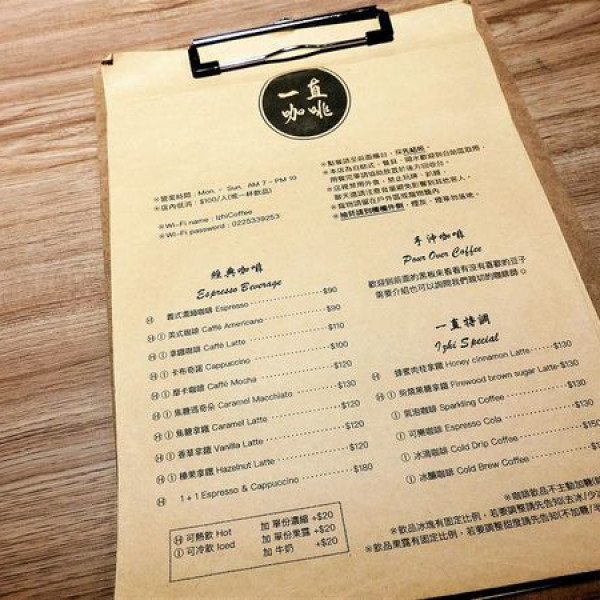 一直
咖啡
※營業時間：Mon. - Sun. AM 7 - PM 10
※店內低消：$100/人(或一杯飲品)
※Wi-Fi name : IzhiCoffee
※Wi-Fi password : 0225339253
※點餐請至前面櫃台，採先結帳。
※本店為自助式，餐具、開水歡迎到自助區取用，
用餐完畢請協助放置於後方回收台。
※店裡禁用外食，禁止玩牌、趴睡，
聊天還請注意音量避免影響到其他客人。
※寵物請留在戶外區或寵物籠內
※抽菸請到欄欄外側，煙灰、煙蒂勿落地。
經典咖啡
Espresso Beverage
Ⓗ 義式濃縮咖啡 Espresso $90
Ⓗ Ⓘ 美式咖啡 Caffé Americano $90
Ⓗ Ⓘ 拿鐵咖啡 Caffé Latte $110
Ⓗ Ⓘ 卡布奇諾 Cappuccino $100
Ⓗ Ⓘ 摩卡咖啡 Caffé Mocha $120
Ⓗ Ⓘ 焦糖瑪奇朵 Caramel Macchiato $130
Ⓗ Ⓘ 焦糖拿鐵 Caramel Latte $120
Ⓗ Ⓘ 香草拿鐵 Vanilla Latte $120
Ⓗ Ⓘ 榛果拿鐵 Hazelnut Latte $120
Ⓗ 1+1 Espresso & Cappuccino $180
Ⓗ 可熱飲 Hot 加 單份濃縮 +$20
Ⓘ 可冷飲 Iced 加 單份果露 +$20
加 牛奶 +$20
手沖咖啡
Pour Over Coffee
歡迎到前面的黑板來看看有沒有喜歡的豆子
需要介紹也可以詢問我們親切的咖啡師☺
一直特調
Izhi Special
Ⓗ 蜂蜜肉桂拿鐵 Honey cinnamon Latte $130
Ⓗ Ⓘ 柴燒黑糖拿鐵 Firewood brown sugar Latte $130
Ⓘ 氣泡咖啡 Sparkling Coffee $130
Ⓘ 可樂咖啡 Espresso Cola $130
Ⓘ 冰滴咖啡 Cold Drip Coffee $150
Ⓘ 冰釀咖啡 Cold Brew Coffee
※咖啡飲品不主動加糖
※飲品冰塊有固定比例，若要調整請先告知(去冰/少
※飲品果露有固定比例，若要調整甜度請先告知(不加糖/